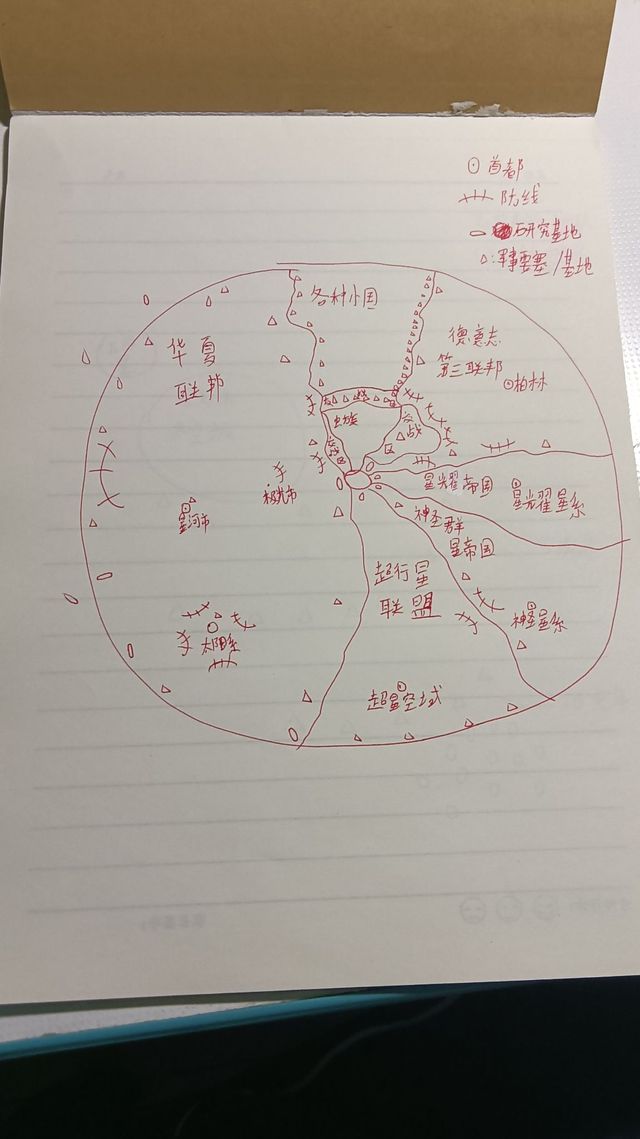 首都
防线
研究基地
军事要塞/基地
各种小国
华夏
联邦
德意志
第三联邦
柏林
虫族
交战
区
交战区
星光耀帝国
星光耀星系
神圣群
星帝国
神圣星系
超行星
联盟
超星空域
星河市
太阳系